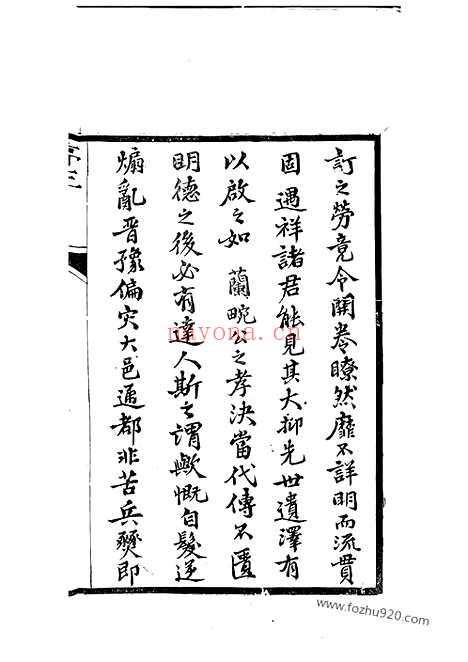 訂之勞竟令開卷瞭然靡不詳明而流貫
固遇祥諸君能見其大抑先世遺澤有
以啟之如 蘭畹公之孝決當代傳不匱
明德之後必有達人斯之謂歟慨自髮逆
煽亂晋豫偏灾大邑通都非苦兵燹即
序 三
miyona.cn
www.fozhu920.com